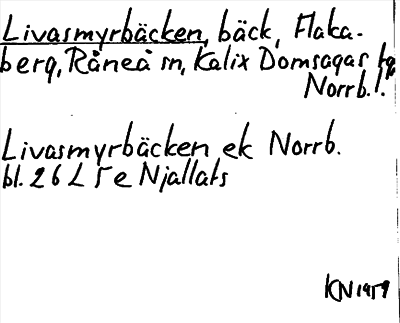 Livasmyrbäcken, bäck, Flaka-
berg, Råneå sn, Kalix Domsagas tg
Norrb. l.
Livasmyrbäcken ek Norrb.
bl. 26 L 5 e Njallats
KN 1959